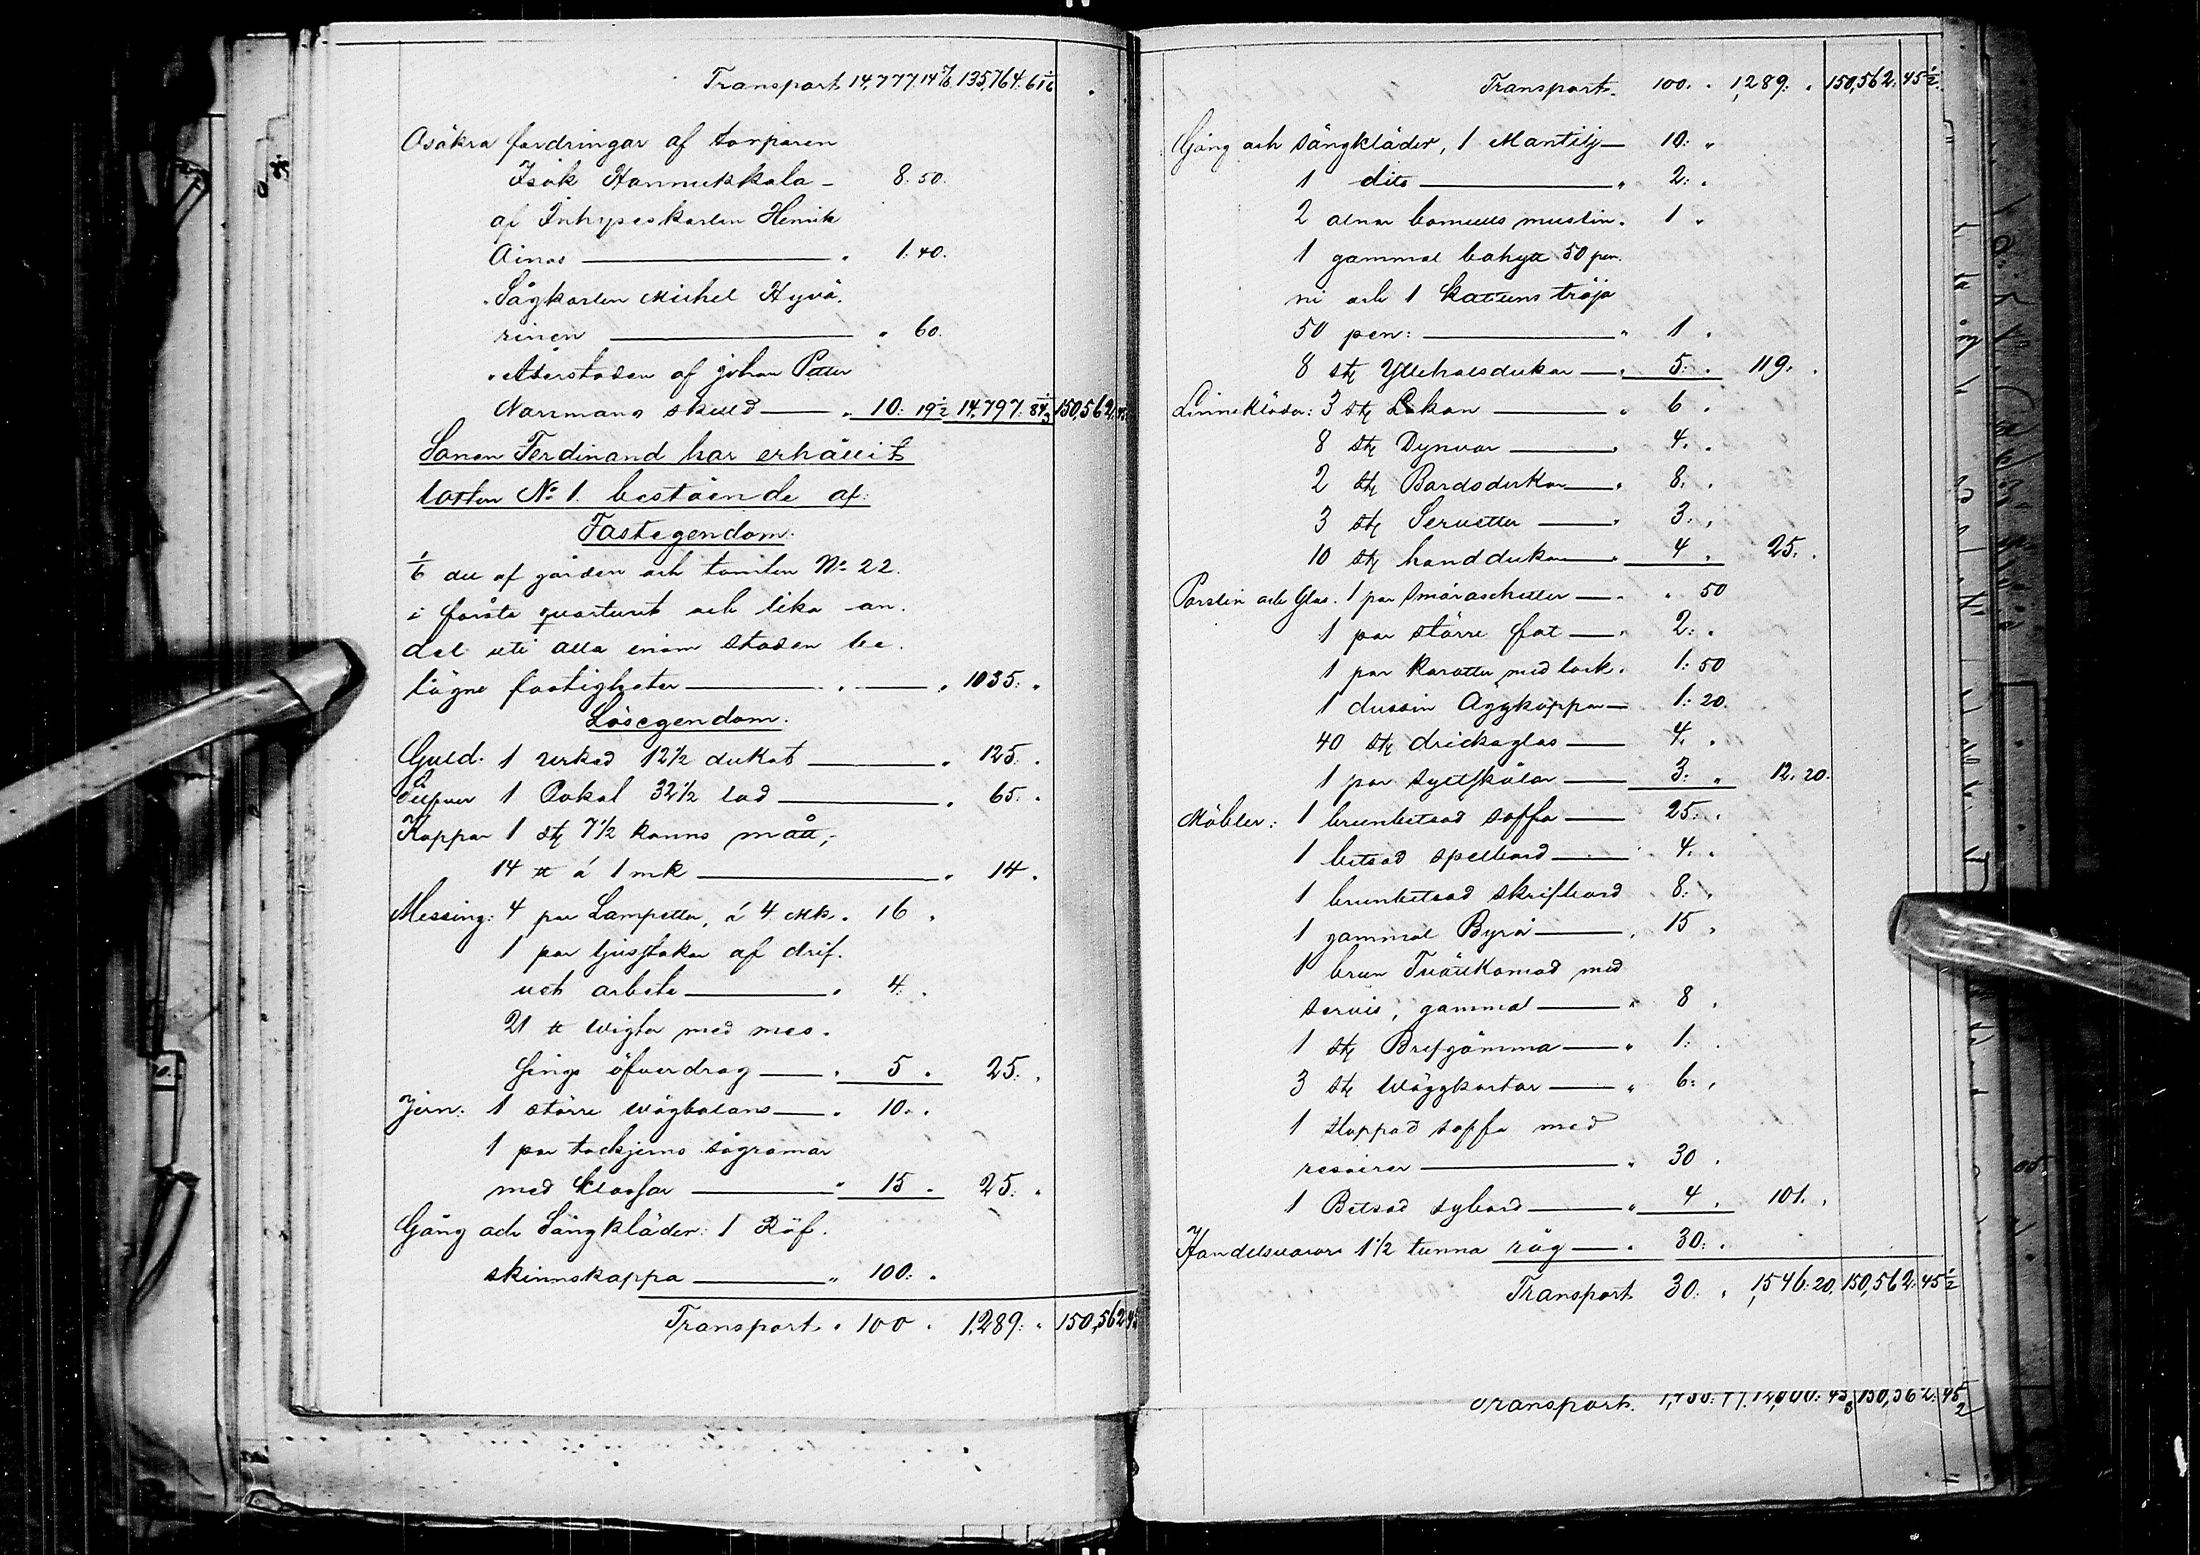 Transport 14,777. 14 135,764. 61
Osäkra fordringar af torparen
Isak Hannukkala - 8. 50.
af Inhyseskarlen Henrik
Ainas " 1. 40.
" Sågkarlen Michel Hyvä-
rinen " 60.
" Återstoden af Johan Petter
Narrmans skuld " 10: 19½ 14,797. 84 150,562.
Sonen Ferdinand har erhållit
lotten No 1. bestående af:
Fastegendom.
1/6 del af gården och tomten No 22.
i första quarteret och lika an-
del uti alla inom staden be-
lägne fastigheter " 1035: "
Lösegendom.
Guld. 1 urkad 12½ dukat " 125: "
Silfver 1 Pokal 32½ lod " 65: "
Koppar 1 st 7½ kanns mått,
14 ℔ á 1 mk " 14 "
Messing: 4 par Lampetter, á 4 mk. 16 "
1 par ljusstakar af drif-
vet arbete " 4: "
21 ℔ wigter med mes-
sings öfverdrag " 5 " 25: "
Jern: 1 större wågbalans " 10: "
1 par tackjerns sågramar
med klossar " 15 " 25: "
Gång och Sängkläder: 1 Räf-
skinnskappa " 100: "
Transport " 100 " 1,289: " 150,562.
Transport. 100: " 1,289: " 150,562: 45½
Gång och sängkläder, 1 Mantilj 10: "
1 dito " 2: "
2 alnar bomulls muslin " 1 "
1 gammal bahytt 50 pen-
ni och 1 kattuns tröja
50 pen: " 1 "
8 st Yllehalsdukar " 5: " 119: "
Linnekläder: 3 st Lakan " 6 "
8 st Dynvar " 4. "
2 st Bordsdukar " 8. "
3 st Servetter " 3: "
10 st handdukar " 4 " 25: "
Porslin och Glas. 1 par smöraschetter " " 50
1 par större fat " 2: "
1 par karotter med lock " 1: 50
1 dussin Äggkoppar 1: 20.
40 st dricksglas 4. "
1 par syltskålar 3: " 12. 20.
Möbler: 1 brunbetsad soffa 25: "
1 betsad spelbord 4. "
1 brunbetsad skrifbord 8: "
1 gammal Byrå " 15 "
1 brun Tvättkomod med
servis, gammal " 8 "
1 st Brefgömma " 1: "
3 st Wäggkartor " 6: "
1 stoppad soffa med
resårer " 30 "
1 Betsad sybord " 4 " 101. "
Handelsvaror 1½ tunna råg " 30: "
Transport 30: " 1,546. 20, 150,562: 45½
Transport. 150,562: 45